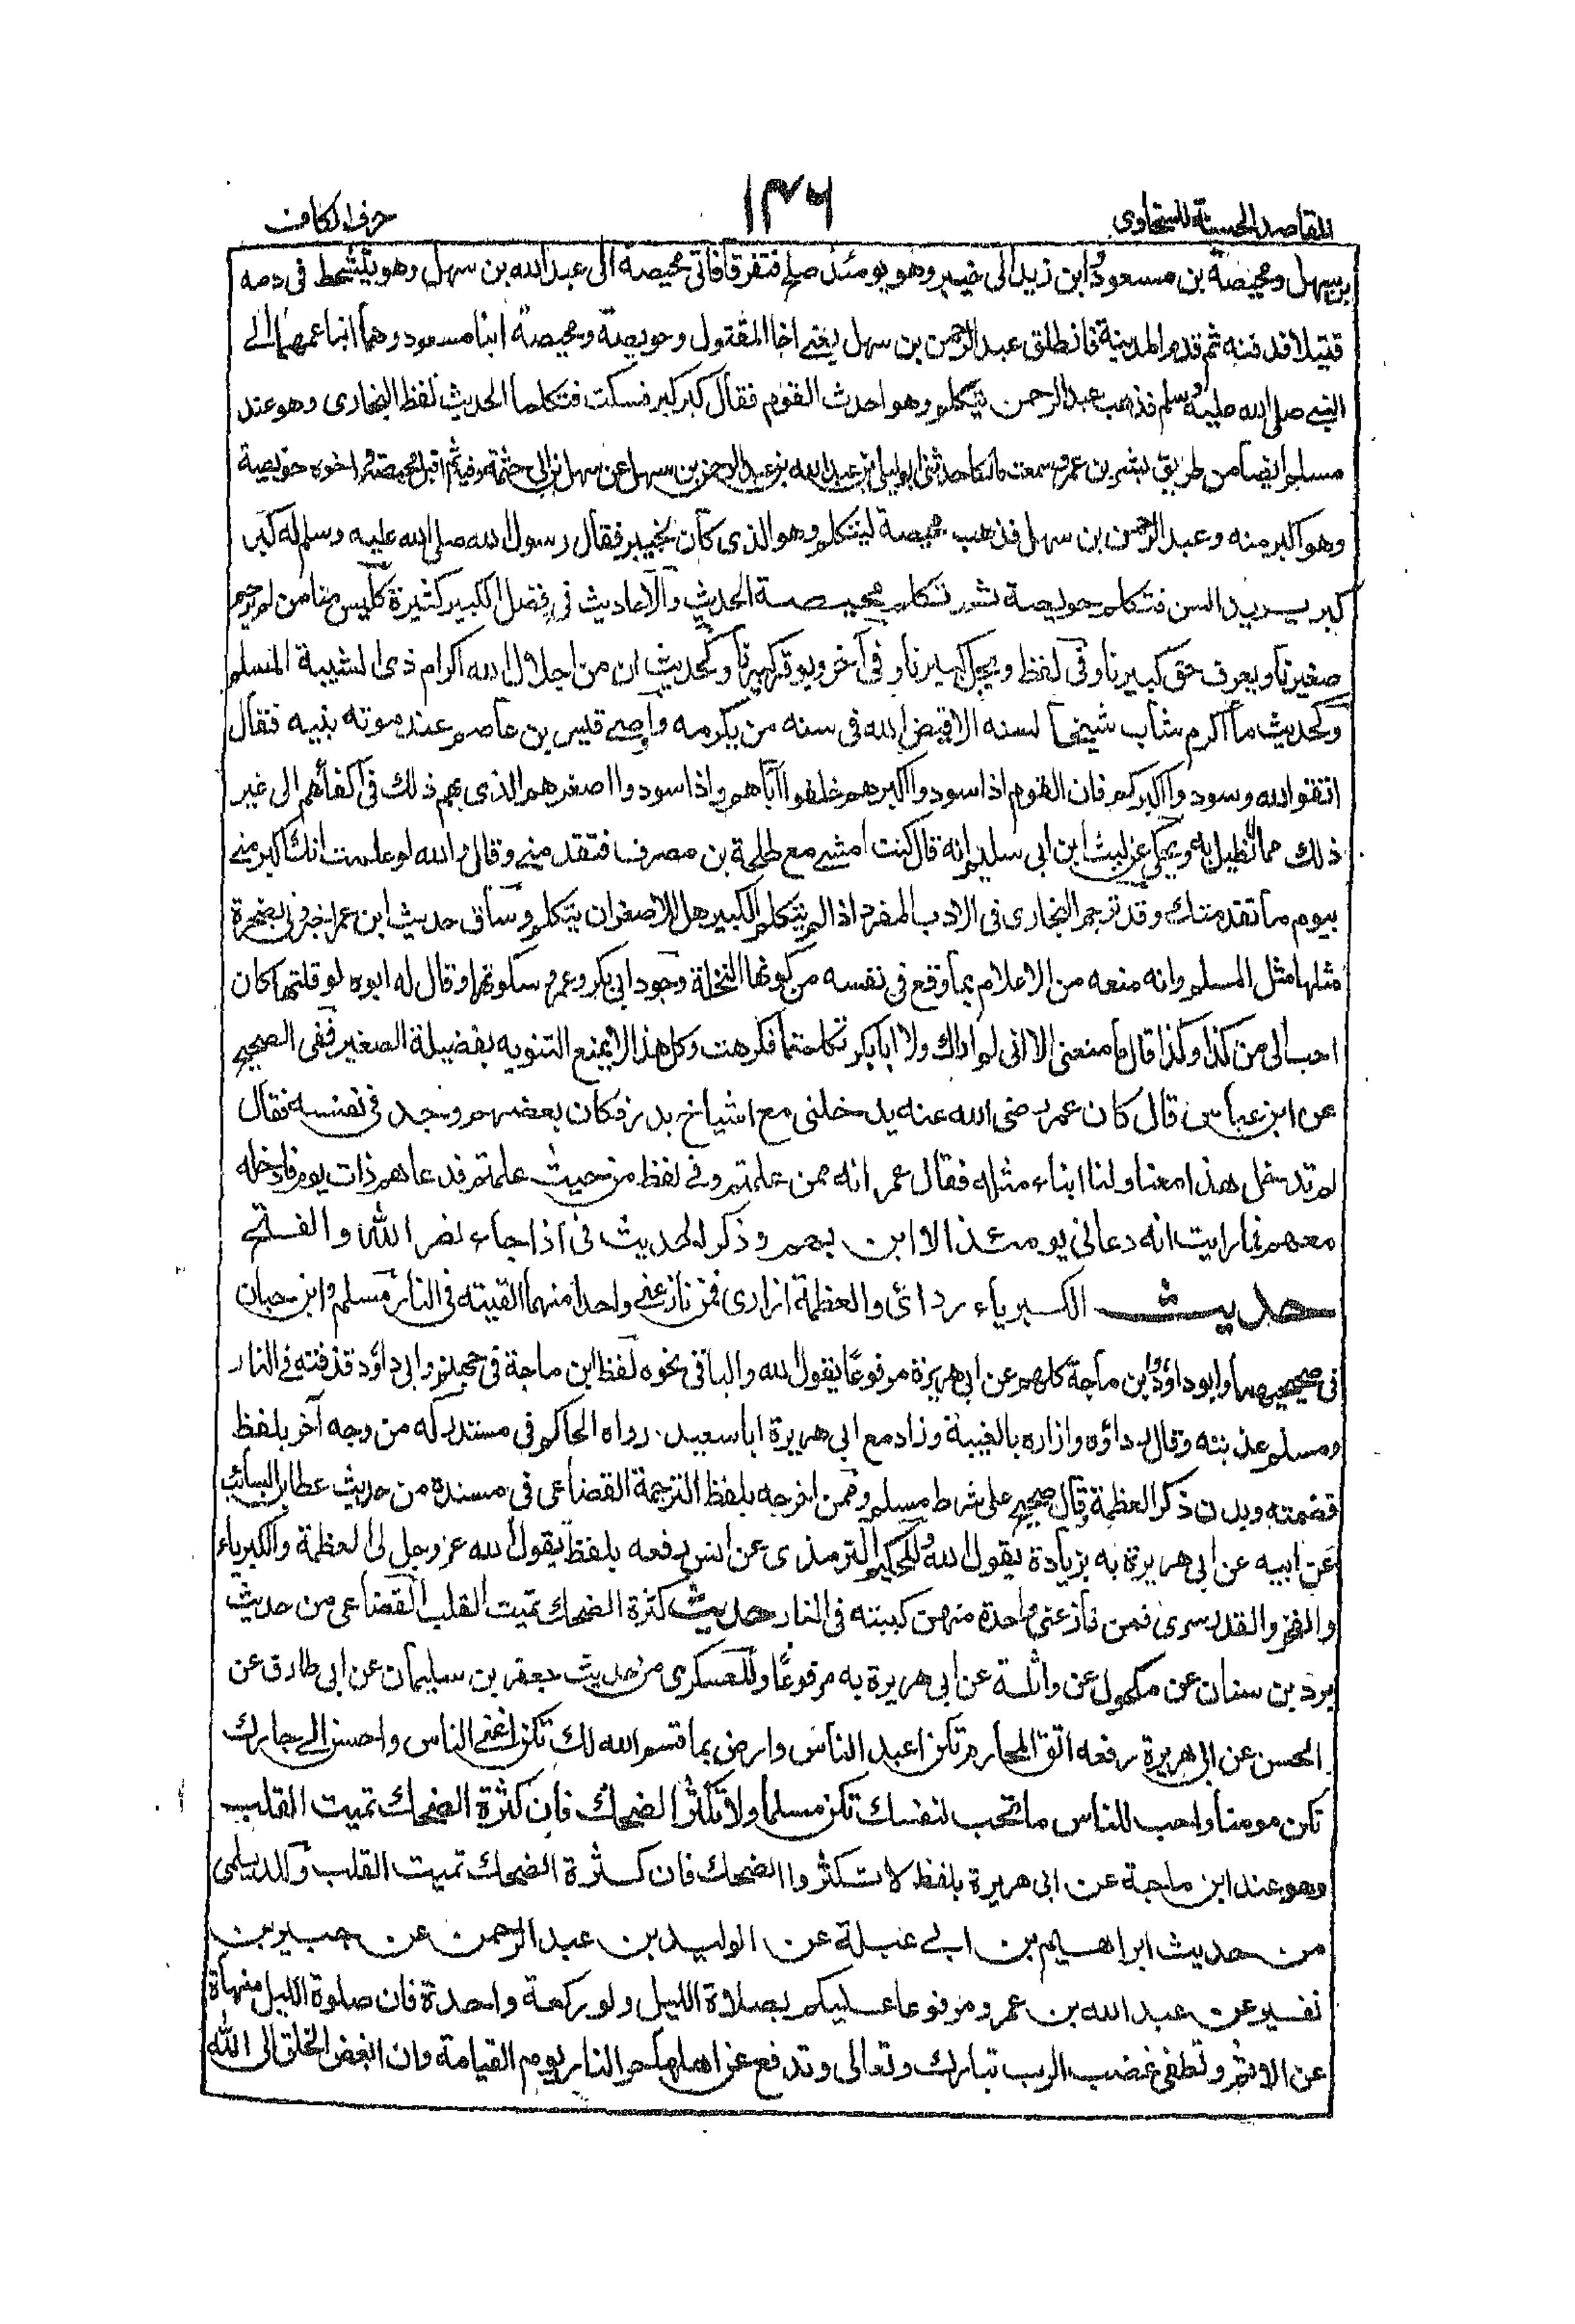 المقاصد الحسنة للسخاوى
١٣٦
حرف الكاف
بن سهل ومحيصة بن مسعود ابن زيد الى خيبر وهو يومئذ صلح فتفرقا فاتى محيصة الى عبد الله بن سهل وهو يتشحط فى دمه
قتيلا فدفنه ثم قدم المدينة فانطلق عبد الرحمن بن سهل يعنى اخا المقتول وحويصة ومحيصة ابنا مسعود وهما ابنا عمهما الى
النبى صلى الله عليه وسلم فذهب عبد الرحمن يتكلم وهو احدث القوم فقال كبر كبر فسكت فتكلما الحديث لفظ البخارى وهو عند
مسلم ايضا من طريق بشر بن عمر سمعت مالكا حدثنى ابو ليلى بن عبد الله بن عبد الرحمن بن سهل عن سهل بن ابى حثمة وفيه ثم اقبل محيصة واخوه حويصة
وهو اكبر منه وعبد الرحمن بن سهل فذهب محيصة ليتكلم وهو الذى كان بخيبر فقال رسول الله صلى الله عليه وسلم له كبر
كبر يريد السن فتكلم حويصة ثم تكلم محيصة الحديث والاحاديث فى فضل الكبير كثيرة كليس منا من لم يرحم
صغيرنا ويعرف حق كبيرنا وفى لفظ ويجل كبيرنا وفى آخر ويوقر كبيرنا وكحديث ان من اجلال الله اكرام ذى الشيبة المسلم
وكحديث ما اكرم شاب شيخا لسنه الا قيض الله فى سنه من يكرمه واوصى قيس بن عاصم عند موته بنيه فقال
اتقوا الله وسودوا اكبركم فان القوم اذا سودوا اكبرهم خلفوا آباهم واذا سودوا اصغرهم ازرى بهم ذلك فى اكفائهم الى غير
ذلك مما نطيل به ويحكى عن ليث ابن ابى سليم انه قال كنت امشى مع طلحة بن مصرف فتقدمنى وقال والله لو علمت انك اكبر منى
بيوم ما تقدمتك وقد ترجم البخارى فى الادب المفرد اذا لم يتكلم الكبير هل للاصغر ان يتكلم وساق حديث ابن عمر اخبرونى بشجرة
مثلها مثل المسلم وانه منعه من الاعلام بما وقع فى نفسه من كونها النخلة وجود ابى بكر وعمر وسكوتهما وقال له ابوه لو قلتها كان
احب الى من كذا وكذا قال ما منعنى الا انى لم اراك ولا ابا بكر تكلمتما فكرهت وكل هذا لا يمنع التنويه بفضيلة الصغير ففى الصحيح
عن ابن عباس قال كان عمر رضى الله عنه يدخلنى مع اشياخ بدر فكان بعضهم وجد فى نفسه فقال
لم تدخل هذا معنا ولنا ابناء مثله فقال عمر انه ممن علمتم وفى لفظ من حيث علمتم فدعاهم ذات يوم فادخله
معهم فما رايت انه دعانى يومئذ الا ليريهم وذكر الحديث فى اذا جاء نصر الله والفتح
حديث الكبرياء ردائى والعظمة ازارى فمن نازعنى واحدا منهما القيته فى النار مسلم وابن حبان
فى صحيحيهما وابو داؤد وابن ماجة كلهم عن ابى هريرة مرفوعا يقول الله والباقى نحوه لفظ ابن ماجة فى جهنم وابى داؤد قذفته فى النار
ومسلم عذبته وقال رداؤه وازاره بالغيبة وزاد مع ابى هريرة ابا سعيد. رواه الحاكم فى مستدركه من وجه آخر بلفظ
قصمته وبدون ذكر العظمة وقال صحيح على شرط مسلم وممن اخرجه بلفظ الترجمة القضاعى فى مسنده من حديث عطا بن السائب
عن ابيه عن ابى هريرة به بزيادة يقول الله وللحكيم الترمذى عن انس رفعه بلفظ يقول الله عز وجل لى العظمة والكبرياء
والفخر والقدر سرى فمن نازعنى واحدة منهن كببته فى النار حديث كثرة الضحك تميت القلب القضاعى من حديث
برد بن سنان عن مكحول عن واثلة عن ابى هريرة به مرفوعا وللعسكرى من حديث جعفر بن سليمان عن ابى طارق عن
الحسن عن ابى هريرة رفعه اتق المحارم تكن اعبد الناس وارض بما قسم الله لك تكن اغنى الناس واحسن الى جارك
تكن مومنا واحب للناس ما تحب لنفسك تكن مسلما ولا تكثر الضحك فان كثرة الضحك تميت القلب
وهو عند ابن ماجة عن ابى هريرة بلفظ لا تكثروا الضحك فان كثرة الضحك تميت القلب وللديلمى
من حديث ابراهيم بن ابى عبلة عن الوليد بن عبد الرحمن عن جبير بن
نفير عن عبد الله بن عمرو مرفوعا عليكم بصلاة الليل ولو ركعة واحدة فان صلوة الليل منهاة
عن الاثم وتطفى غضب الرب تبارك وتعالى وتدفع عن اهلها حر النار يوم القيامة وان ابغض الخلق الى الله